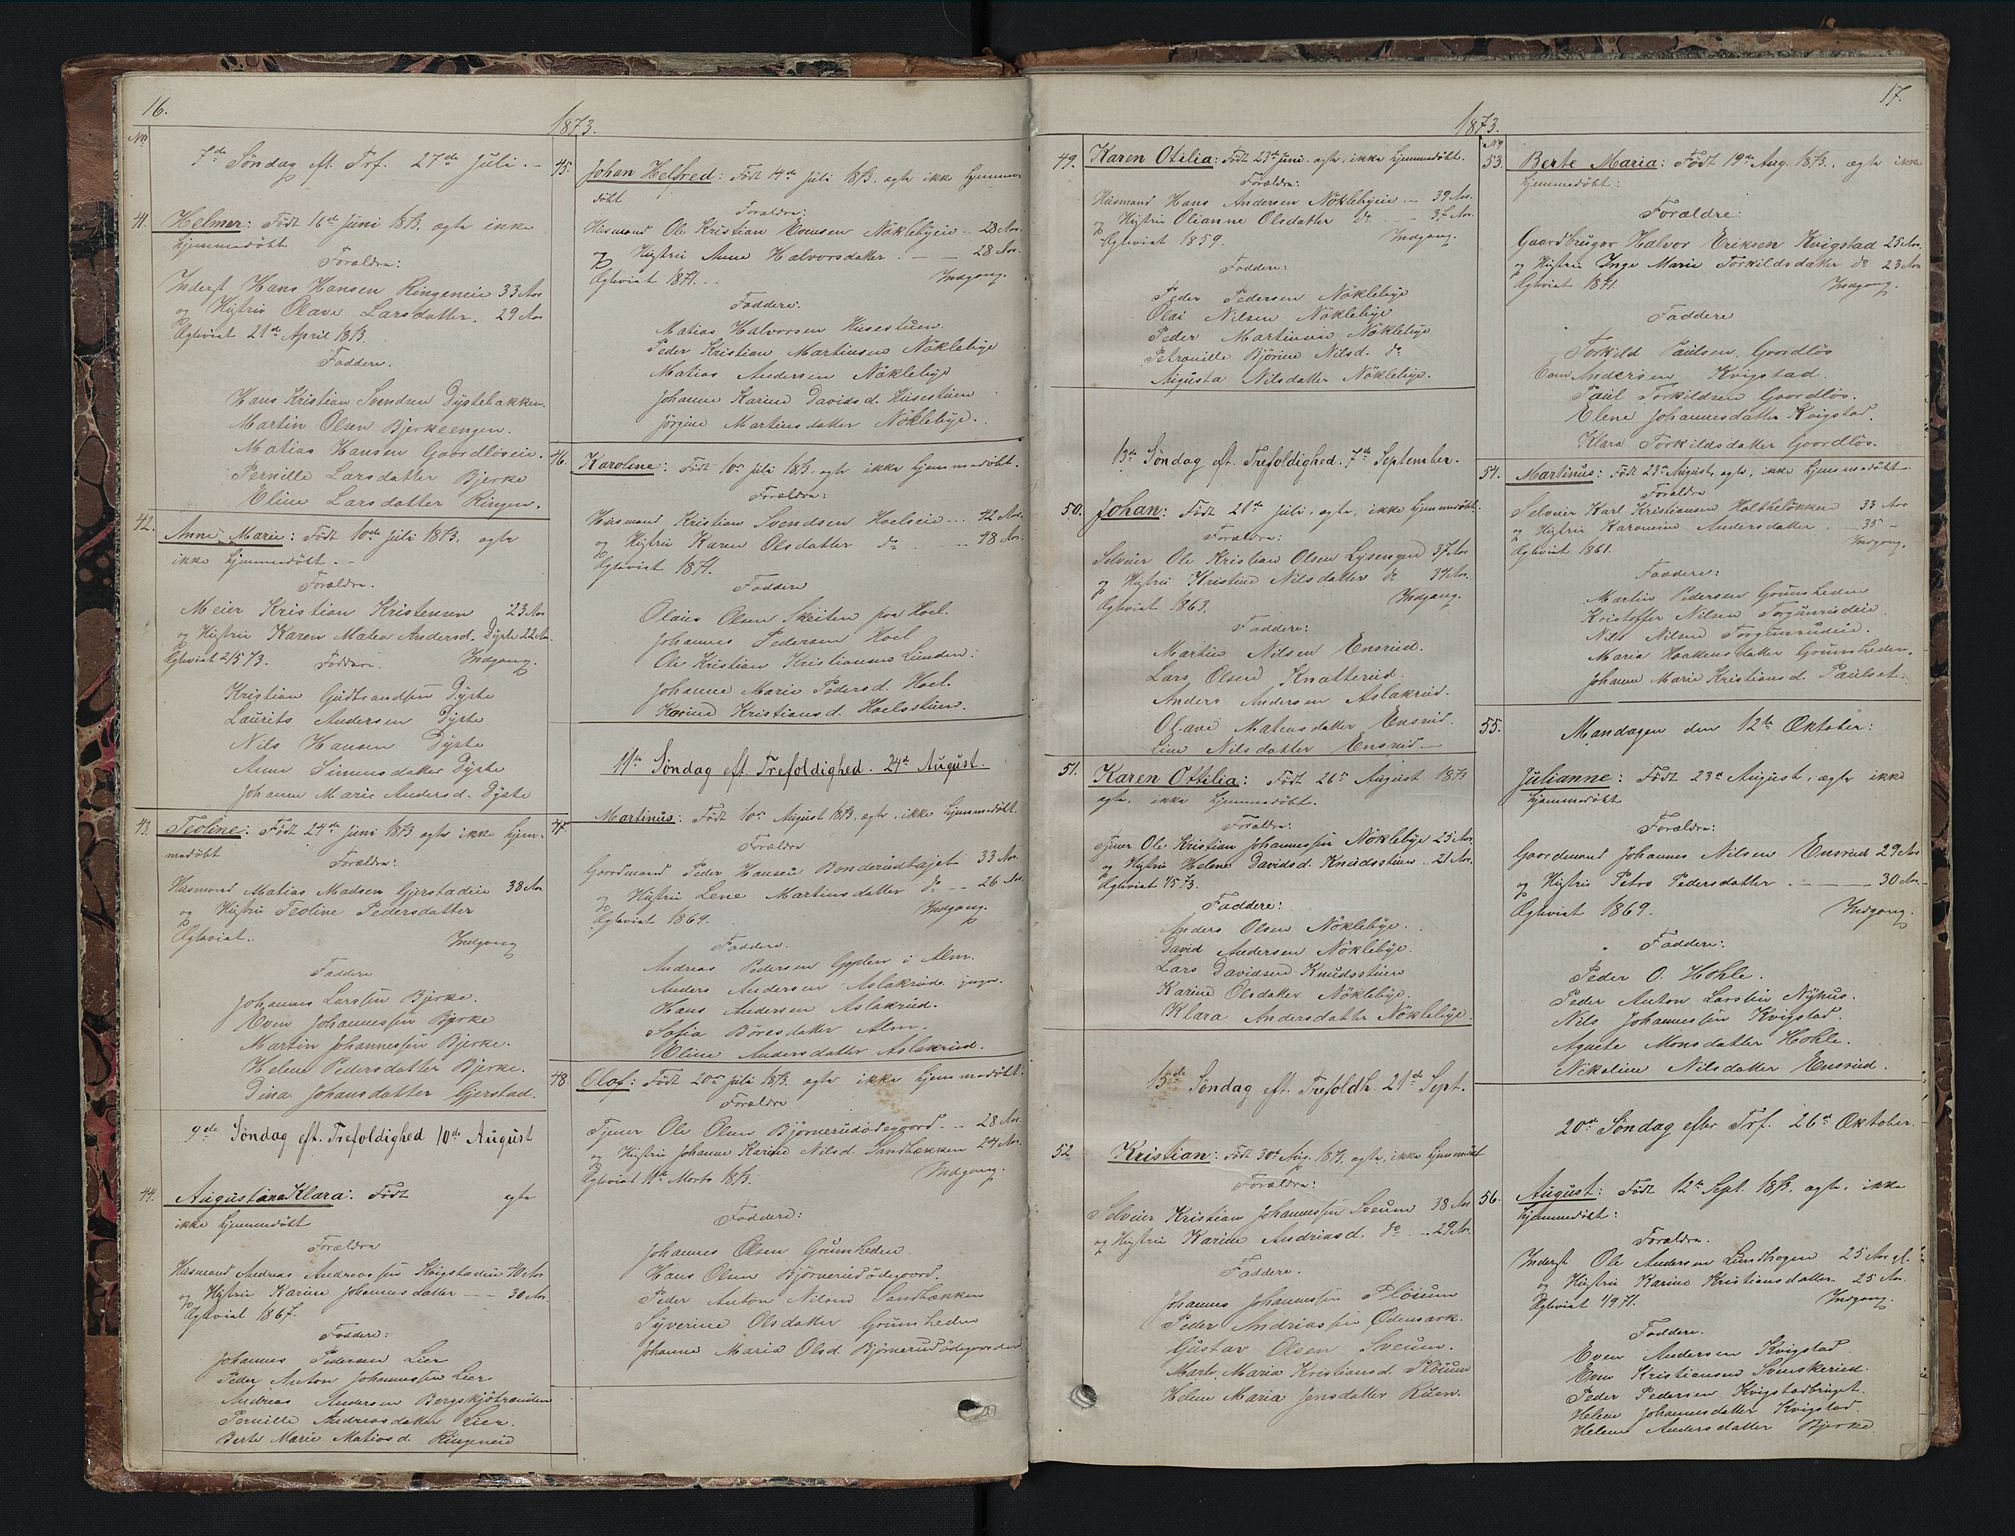 16.
1873.
No
7de Søndag eft. Trf. 27de Juli.
41. Helmer: Født 16de Juni 1873. ægte ikke
hjemmedøbt
Forældre:
Inderst Hans Hansen Ringeneie 33 Aar
og Hustru Olava Larsdatter. 29 Aar
Ægteviet 21de April 1873.
Faddere.
Hans Kristian Svendsen Dystebakken
Martin Olsen Bjerkeengen.
Matias Hansen Gaardløseie.
Pernille Larsdatter Bjerke
Eline Larsdatter Ringen.
42. Anne Marie: Født 10de Juli 1873. ægte
ikke hjemmedøbt.
Forældre.
Meier Kristian Kristensen 23 Aar
og Hustru Karen Matea Andersd. Dyste 22 Aar
Ægteviet 2/5 73. Faddere. Indgang.
Kristian Gudbrandsen Dyste
Laurits Andersen Dyste
Nils Hansen Dyste
Anne Simensdatter Dyste
Johanne Marie Andersd. Dyste
43. Teoline: Født 24de Juni 1873 ægte ikke hjem-
medøbt
Forældre:
Husmand Matias Madsen Gjerstadeie 38 Aar
og Hustru Teoline Pedersdatter
Ægteviet. Indgang
Faddere
Johannes Larssen Bjerke.
Even Johannessen Bjerke
Martin Johannessen Bjerke.
Helene Pedersdatter Bjerke.
Dina Johansdatter Gjerstad.
9de Søndag eft. Trefoldighed 10de August
44. Augustiana Klara: Født ægte
ikke hjemmedøbt
Forældre
Husmand Andreas Andreassen Kvigstadeie 40 Aar
og Hustru Karine Johannesdatter 30 Aar.
Ægteviet 1867.
Faddere:
Johannes Pedersen Lier
Peder Anton Johannessen Lier
Andreas Andersen
Pernille Andreasdatter Lier.
Berte Marie Matiasd. Ringeneie
45. Johan Helfred: Født 14de Juli 1873. ægte ikke hjemme-
døbt
Forældre:
Husmand Ole Kristian Evensen Nøklebyeie 23 Aar.
og Hustru Anne Halvorsdatter. 28 Aar.
Ægteviet 1871. Indgang.
Faddere.
Matias Halvorsen Husestuen.
Peder Kristian Martinsen Nøklebye
Matias Andersen Nøklebye
Johanne Karine Davidsd. Husestuen
Jørgine Martinsdatter Nøklebye.
46. Karoline: Født 10de Juli 1873. ægte ikke hjemmedøbt.
Forældre:
Husmand Kristian Svendsen Hoelseie 42 Aar.
og Hustru Karen Olsdatter do 48 Aar.
Ægteviet 1871.
Faddere
Olaus Olsen Skeiten paa Hoel.
Johannes Pedersen Hoel
Ole Kristian Kristiansen Lunden:
Johanne Marie Pedersd. Hoel.
Karine Kristiansd. Hoelsstuen.
11te Søndag eft. Trefoldighed. 24de August.
47. Martinus: Født 10de August 1873. ægte. ikke hjemmedøbt.
Forældre
Gaardmand Peder Hansen Bonderudhajet 33 Aar
og Hustru Lene Martinsdatter do 26 Aar.
Ægteviet 1869. Indgang.
Faddere.
Andreas Pedersen Goplen i Alm.
Anders Andersen Aslakrud. yngre.
Hans Andersen Aslakrud.
Sofia Børesdatter Alm.
Eline Andersdatter Aslakrud.
48. Olaf: Født 20de Juli 1873. ægte ikke hjemmedøbt:
Forældre
Tjener Ole Olsen Bjørnerudødegaard 28 Aar.
og Hustru Johanne Karine Nilsd. Sandbækken 24 Aar.
Ægteviet 11te Marts 1873. Indgang.
Faddere:
Johannes Olsen Grumheden.
Hans Olsen Bjørnerudødegaard.
Peder Anton Nilsen Sandbækken
Syverine Olsdatter Grumheden
Johanne Maria Olsd. Bjørnerudødegaarden
17.
1873.
49. Karen Otilia: Født 23de Juni. ægte. ikke hjemmedøbt.
Forældre:
Husmand Hans Andersen Nøklebyeie 39 Aar.
og Hustru Olianne Olsdatter do 37 Aar.
Ægteviet 1859. Indgang.
Faddere:
Peder Pedersen Nøklebye
Olai Nilsen Nøklebye
Peder Martinsen Nøklebye
Petronille Bjørine Nilsd. do
Augusta Nilsdatter Nøklebye.
13de Søndag eft. Trefoldighed. 7de September.
50. Johan: Født 21de Juli. ægte, ikke hjemmedøbt:
Forældre:
Selveier Ole Kristian Olsen Lysengen 37 Aar
og Hustru Kristine Nilsdatter do 34 Aar.
Ægteviet 1863. Indgang.
Faddere:
Martin Nilsen Ensrud.
Lars Olsen Knatterud.
Anders Andersen Aslakrud.
Olave Mateusdatter Ensrud.
Line Nilsdatter Ensrud.
51. Karen Ottilia: Født 26de August 1873
ægte. ikke hjemmedøbt.
Forældre:
Tjener Ole Kristian Johannessen Nøklebye 23 Aar.
og Hustru Helene Davidsd. Knudsstuen 21 Aar.
Ægteviet 4/5 73.
Faddere:
Anders Olsen Nøklebye.
David Andersen Nøklebye.
Lars Davidsen Knudsstuen
Karine Olsdatter Nøklebye.
Klara Andersdatter Nøklebye.
15de Søndag eft. Trefoldh. 21de Sept.
52 Kristian: Født 30de Aug. 1873. ægte, ikke hjemmedøbt
Forældre:
Selveier Kristian Johannessen Sveum 38 Aar
og Hustru Karine Andriasd. do 29 Aar.
Faddere.
Johannes Johannessen Plösum
Peder Andriassen Ødemark.
Gustav Olsen Sveum.
Marte Maria Kristiansd. Plösum
Helene Maria Jensdatter Ruen.
No
53. Berte Maria: Født 19de Aug. 1873. ægte ikke
hjemmedøbt:
Forældre
Gaardbruger Halvor Eriksen Kvigstad 25 Aar.
og Hustru Inge Marie Torkildsdatter do 23 Aar
Ægteviet 1871. Indgang.
Faddere
Torkild Paulsen Gaardløs
Even Andersen Kvigstad.
Paul Torkildsen Gaardløs.
Elene Johannesdatter Kvigstad.
Klara Torkildsdatter Gaardløs.
54. Martinus: Født 23de August, ægte, ikke hjemmedøbt
Forældre
Selveier Karl Kristiansen Holtheløkken 33 Aar
og Hustru Karoline Andersdatter. 35 -
Ægteviet 1861. Indgang.
Faddere:
Martin Pedersen Grumheden
Kristoffer Nilsen Torgunrudeie.
Nils Nilsen Torgunrudeie.
Maria Haakensdatter Grumheden.
Johanne Marie Kristiansd. Paulset.
55. Mandagen den 12te Oktober:
Julianne: Født 23de August, ægte ikke
hjemmedøbt
Forældre:
Gaardmand Johannes Nilsen Ensrud 29 Aar
og Hustru Petra Pedersdatter 30 Aar.
Ægteviet 1869. Indgang.
Faddere:
Peder O. Hohle.
Peder Anton Larsen Nyhus.
Nils Johannessen Kvigstad.
Agnete Monsdatter Hohle.
Nikoline Nilsdatter Ensrud.
20de Søndag efter Trf. 26de Oktober.
56. August: Født 12te Sept. 1873. ægte. ikke
hjemmedøbt:
Forældre.
Inderst Ole Andersen Lundhagen 25 Aar gl.
og Hustru Karine Kristiansdatter 25 Aar.
Ægteviet 4/9 71. Indgang.
Faddere.
Even Andersen Kvigstad.
Even Kristiansen Svenskerud.
Peder Pedersen Kvigstadbruget.
Helene Johannesdatter Kvigstad.
Helene Andersdatter Bjerke